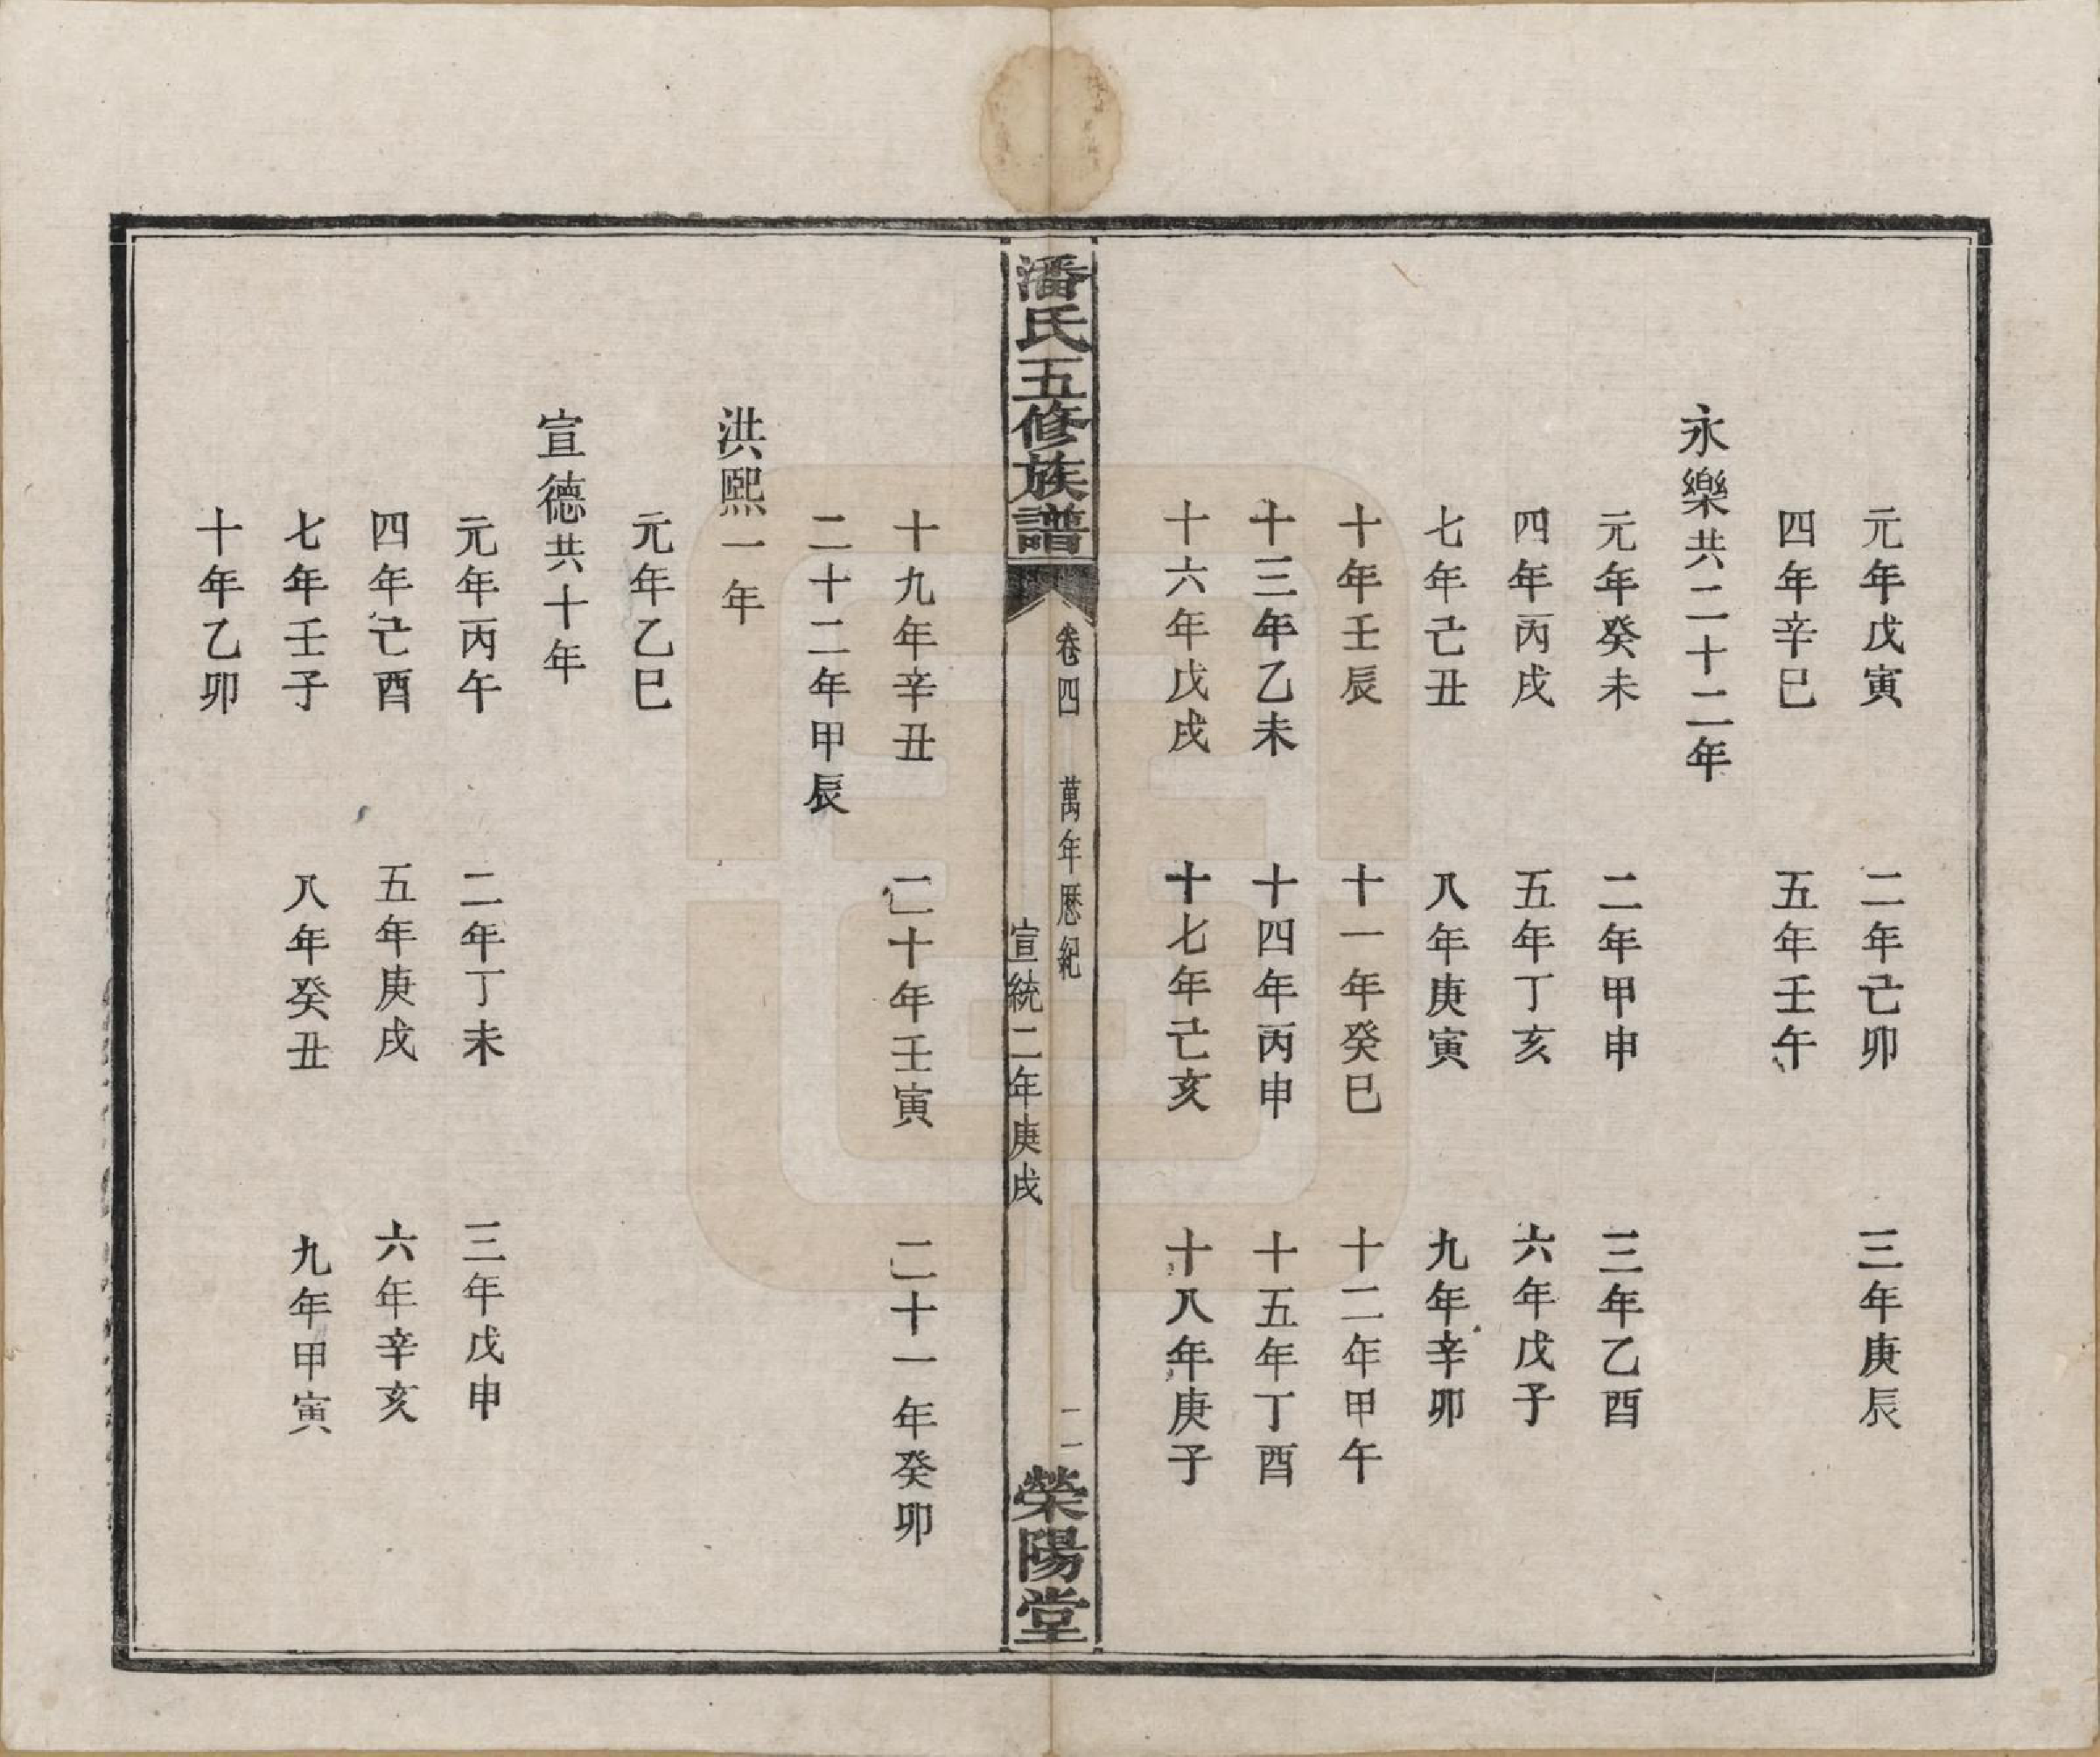 元年戊寅　二年己卯　三年庚辰
四年辛巳　五年壬午
永樂共二十二年
元年癸未　二年甲申　三年乙酉
四年丙戌　五年丁亥　六年戊子
七年己丑　八年庚寅　九年辛卯
十年壬辰　十一年癸巳　十二年甲午
十三年乙未　十四年丙申　十五年丁酉
十六年戊戌　十七年己亥　十八年庚子
潘氏五修族譜
卷四　萬年曆紀　二
宣統二年庚戌
榮陽堂
十九年辛丑　二十年壬寅　二十一年癸卯
二十二年甲辰
洪熙一年
元年乙巳
宣德共十年
元年丙午　二年丁未　三年戊申
四年己酉　五年庚戌　六年辛亥
七年壬子　八年癸丑　九年甲寅
十年乙卯